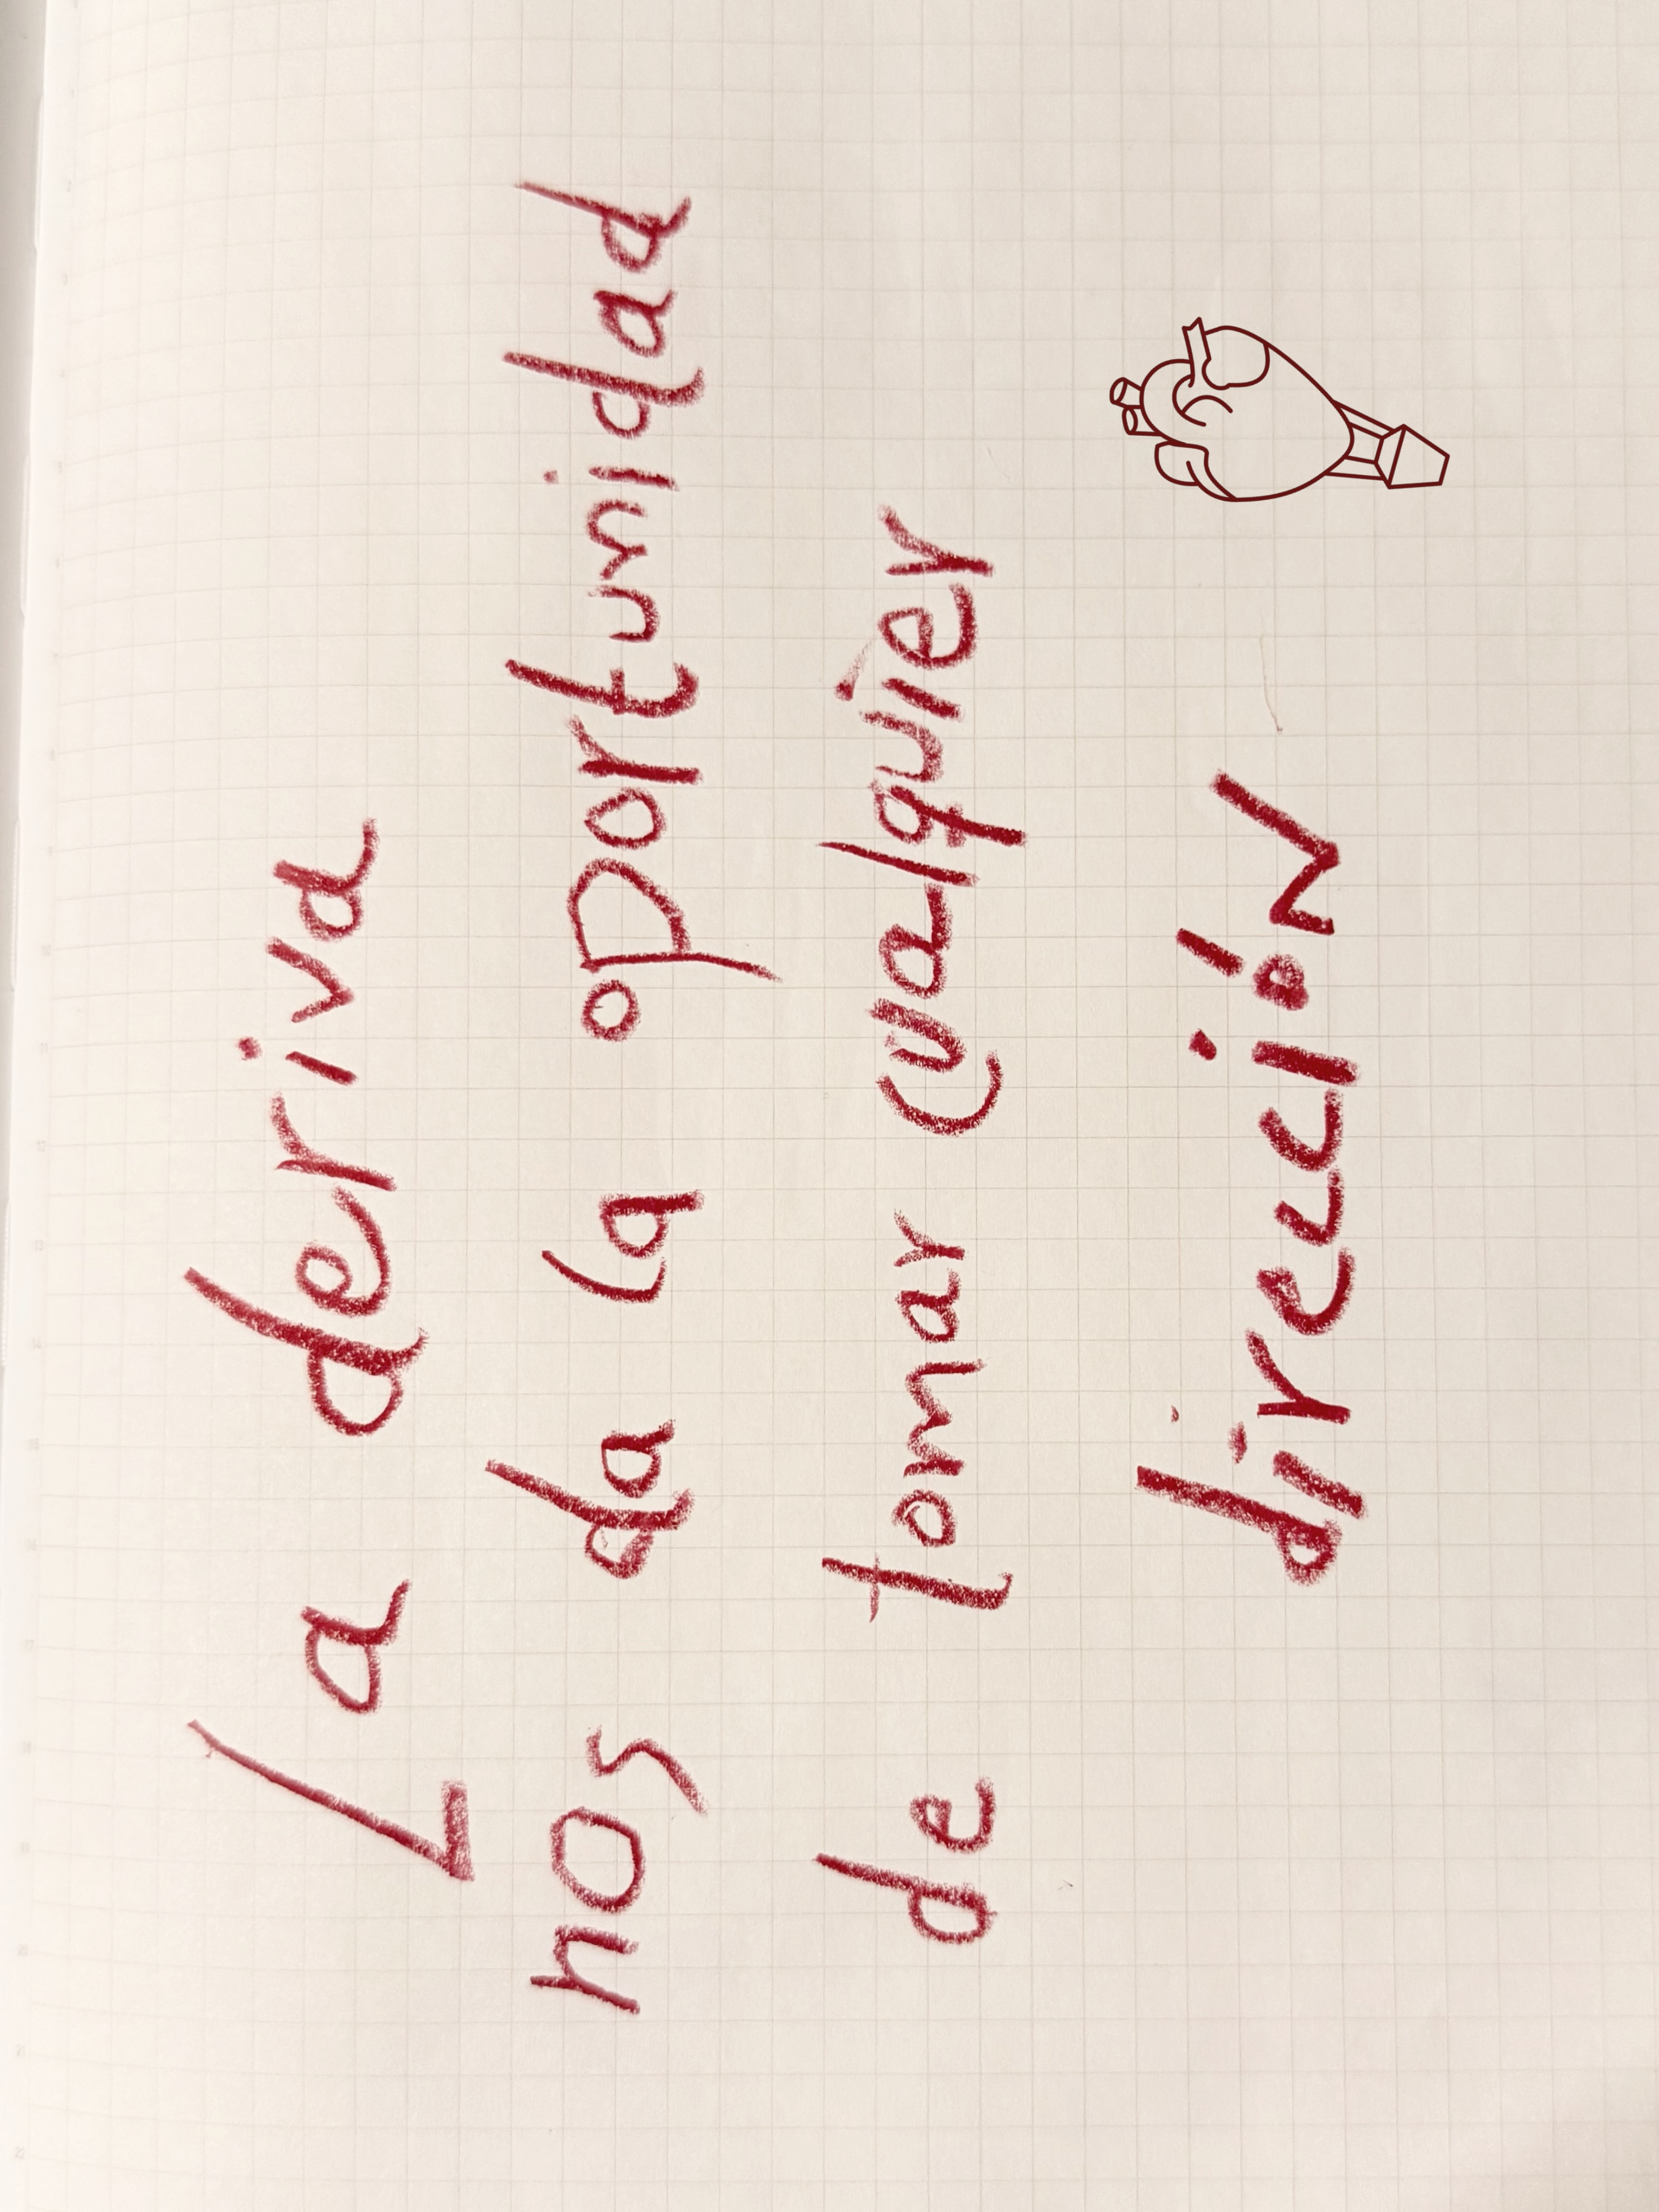 La deriva
nos da la oportunidad
de tomar cualquier
dirección